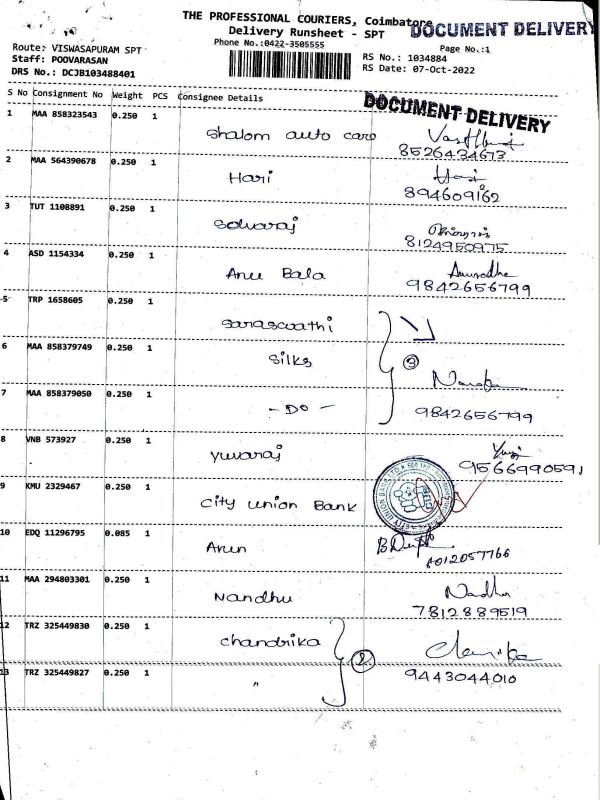 THE PROFESSIONAL COURIERS, Coimbatore
DOCUMENT DELIVERY
Delivery Runsheet - SPT
Phone No.:0422-3505555
Page No.:1
Route: VISWASAPURAM SPT
Staff: POOVARASAN
DRS No.: DCJB103488401
RS No.: 1034884
RS Date: 07-Oct-2022
S No Consignment No Weight PCS Consignee Details
DOCUMENT DELIVERY
1 MAA 858323543 0.250 1
Shalom auto care
8526434673
2 MAA 564390678 0.250 1
Hari Hari
894609162
3 TUT 1108891 0.250 1
Selvaraj
8124950975
4 ASD 1154334 0.250 1
Anu Bala Anuradha
9842656799
5 TRP 1658605 0.250 1
Saraswathi
6 MAA 858379749 0.250 1
Silks
3
7 MAA 858379050 0.250 1
- Do -
9842656799
8 VNB 573927 0.250 1
Yuvaraj Yuvi
9566990591
9 KMU 2329467 0.250 1
City Union Bank
10 EDQ 11296795 0.085 1
Arun
11 MAA 294803301 0.250 1
Nandhu
7812889519
12 TRZ 325449830 0.250 1
Chandrika
2
13 TRZ 325449827 0.250 1
"
9443044010